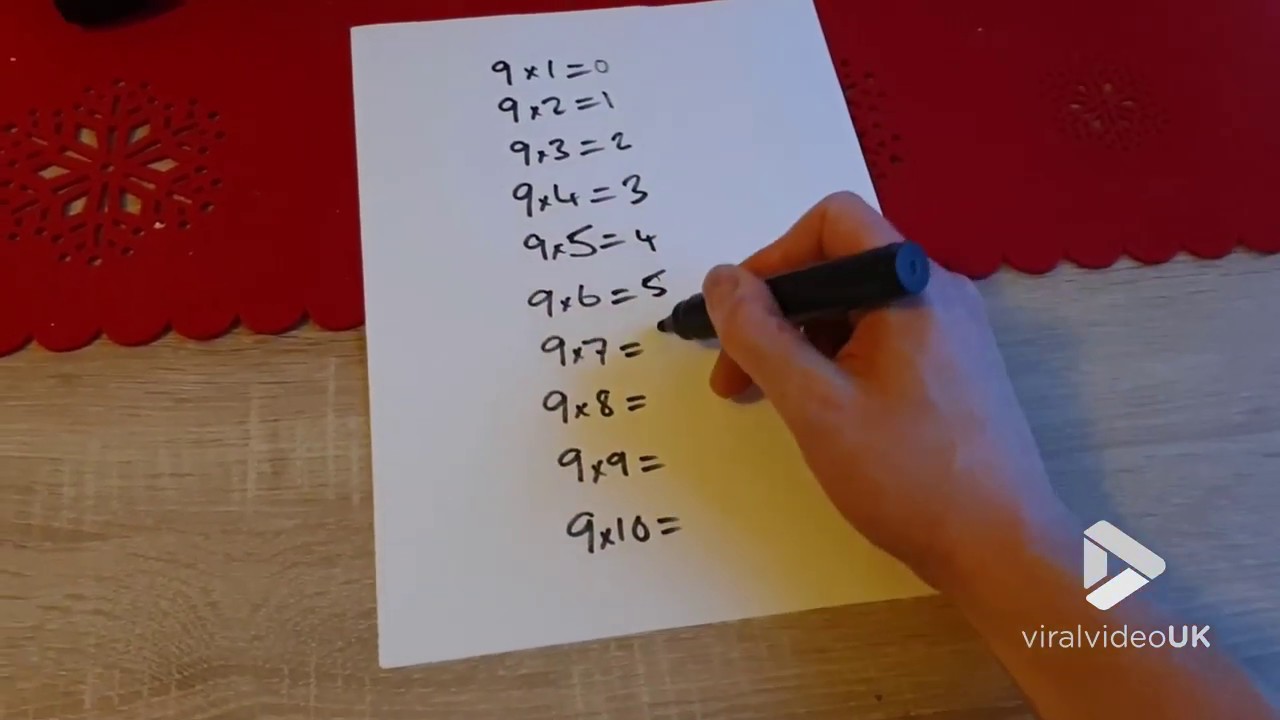 9×1=0
9×2=1
9×3=2
9×4=3
9×5=4
9×6=5
9×7=
9×8=
9×9=
9×10=
viralvideoUK